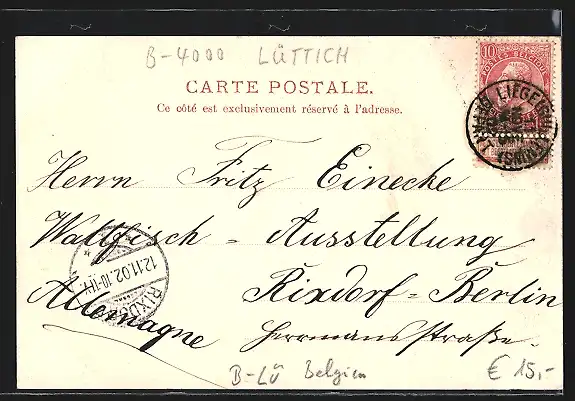 B-4000 LÜTTICH
10
POSTES BELGIQUE
CARTE POSTALE.
Ce côté est exclusivement réservé à l'adresse.
LIÉGE
Herrn Fritz Einecke
Wallfisch - Ausstellung
12.11.02.10-11V.
RIXDORF
Rixdorf - Berlin
Allemagne Herrmansstraße.
B-LÜ Belgien
€ 15,-